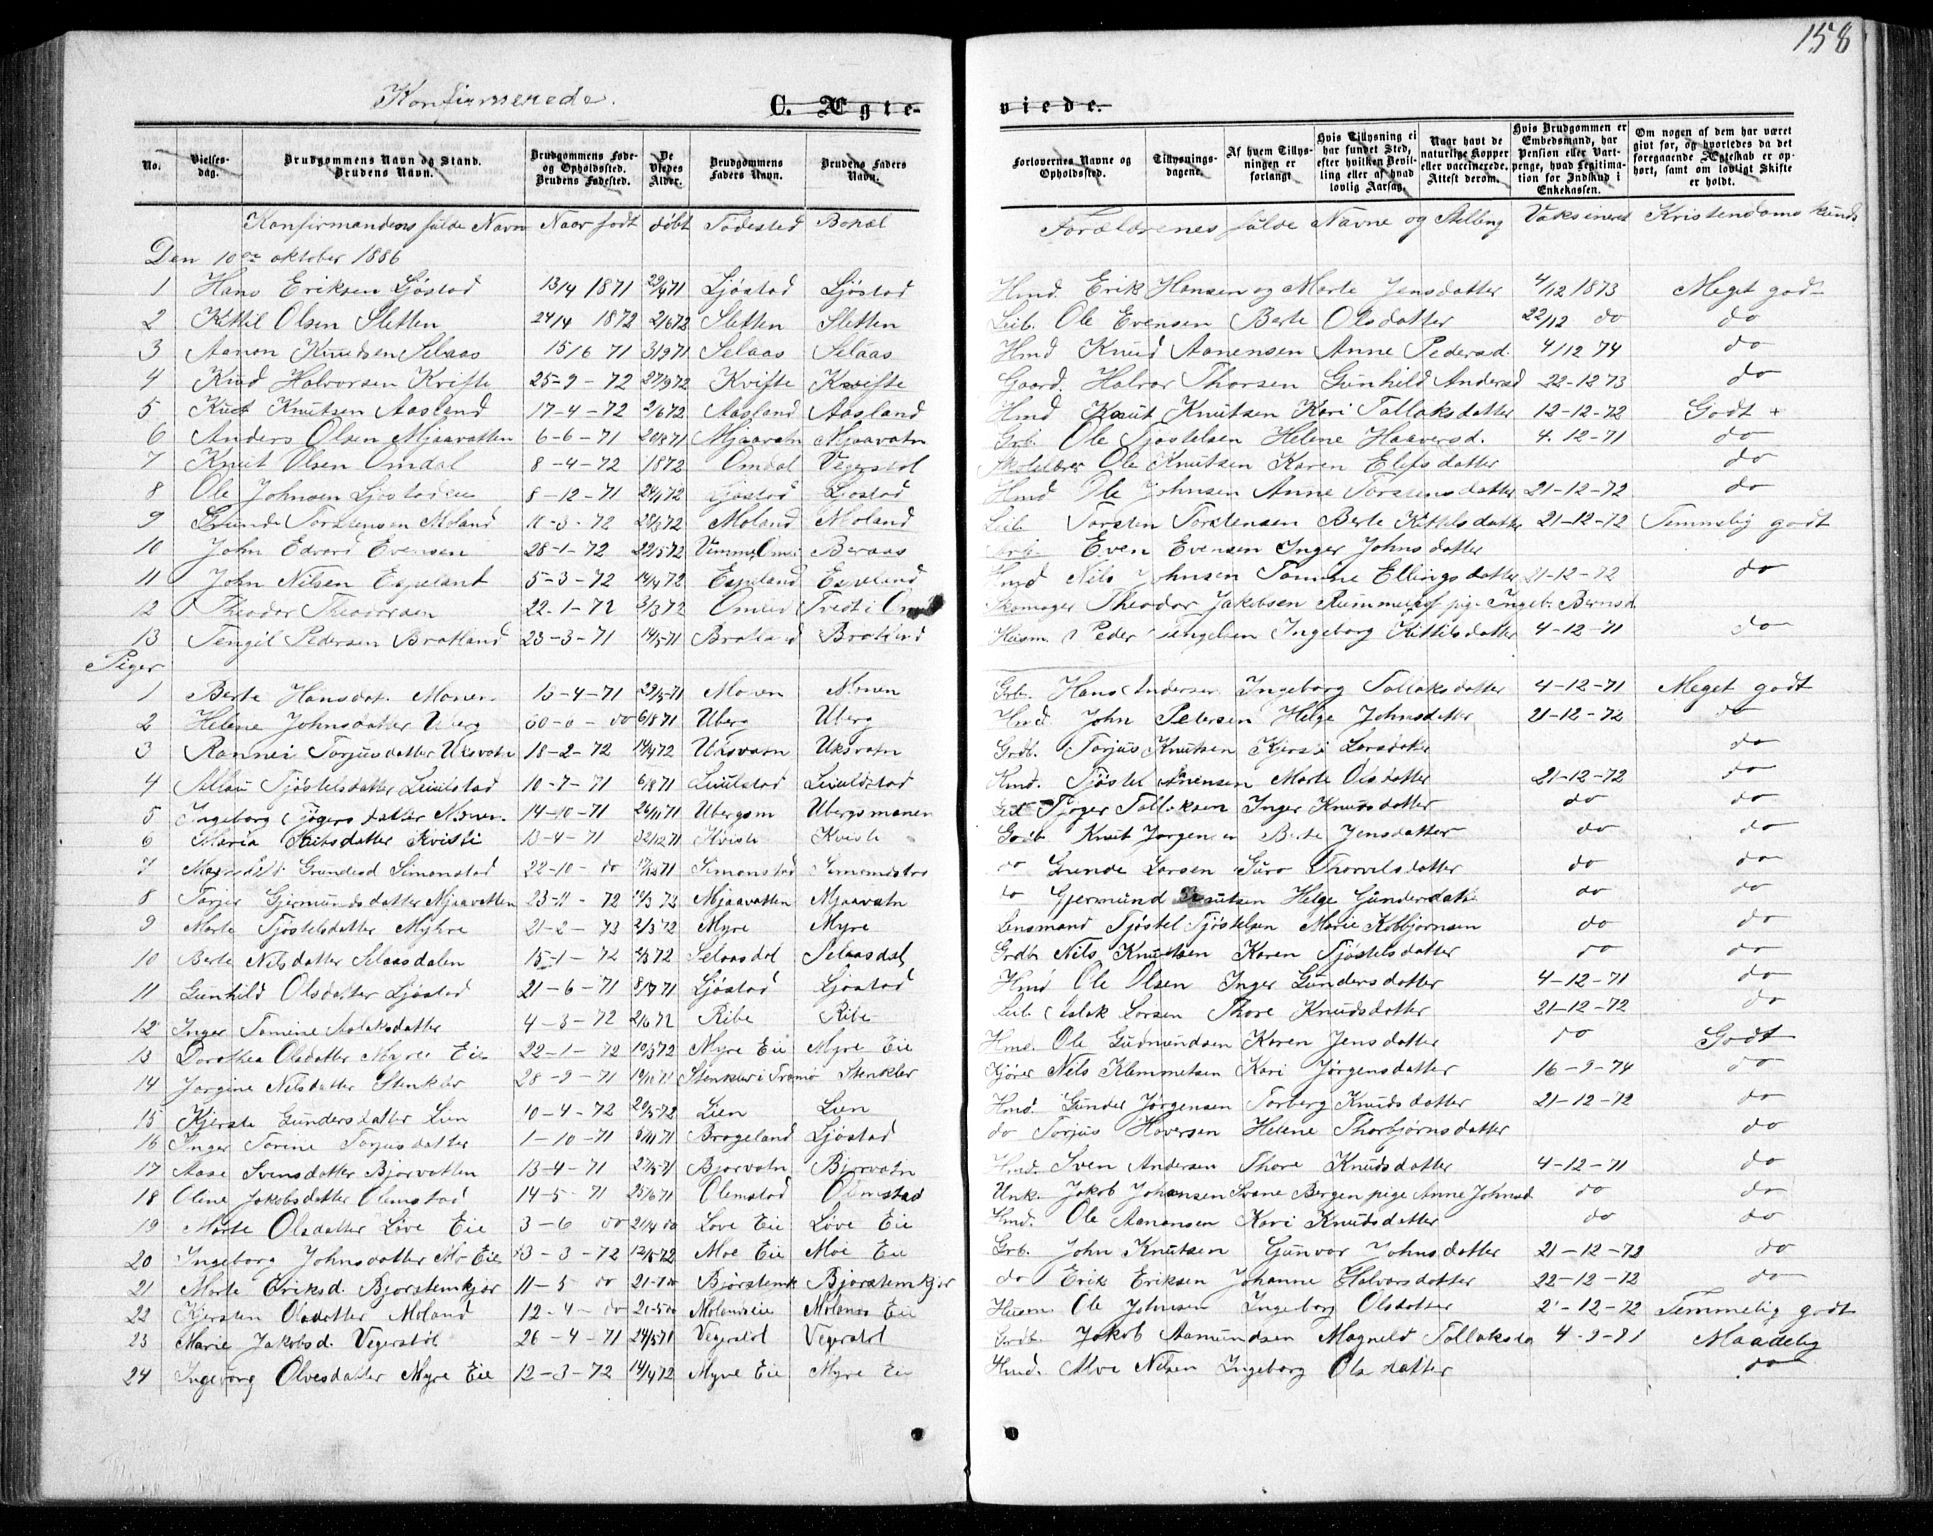 158
Konfirmerede.
C. Ægte-
viede.
No.
Vielses-dag.
Brudgommens Navn og Stand. Brudens Navn.
Brudgommens Føde- og Opholdssted. Brudens Fødested.
De Viedes Alder.
Brudgommens Faders Navn.
Brudens Faders Navn.
Forlovernes Navne og Opholdssted.
Tillysnings-dagene.
Af hvem Tillysningen er forlangt
Hvis Tillysning ei har fundet Sted, efter hvilken Bevilling eller af hvad lovlig Aarsag.
Naar havt de naturlige Kopper eller vaccinerede. Attest derom.
Hvis Brudgommen er Embedsmand, har Pension eller Vartpenge, hvad Legitimation for Indskud i Enkekassen.
Om nogen af dem har været givt før, og hvorledes da det foregaaende Ægteskab er ophørt, samt om lovligt Skifte er holdt.
Konfirmandens fulde Navn Naar født døbt Fødested Bopæl Forældrenes fulde Navne og Stilling Vaksineret Kristendomskunds
Den 10de oktober 1886
1 Hans Eriksen Ljøstad 13/4 1871 29/4 71 Ljøstad Ljøstad Hmd. Erik Hansen og Marte Jensdatter 4/12 1873 Meget godt
2 Kittil Olsen Sletten 24/4 1872 2/6 72 Sletten Sletten Leib. Ole Evensen Berte Olsdatter 22/12 do do
3 Aanon Knudsen Selaas 15/6 71 3/9 71 Selaas Selaas Hmd Knud Aanensen Anne Pedersd. 4/12 74 do
4 Knud Halvorsen Kvifte 25-9-72 27/9 72 Kvifte Kvifte Gaard. Halvor Thorsen Gunhild Andersd 22-12-73 do
5 Knut Knutsen Aasland 17-4-72 2/6 72 Aasland Aasland Hmd Knut Knutsen Kari Tallaksdatter 12-12-72 Godt +
6 Anders Olsen Mjaavatten 6-6-71 20/8 71 Mjaavatn Mjaavatn Grb. Ole Tjøstelsen Helene Haaversd. 4.12-71 do
7 Knut Olsen Omdal 8-4-72 1872 Omdal Vegerstøl Skolelærer Ole Knutsen Karen Elefsdatter do
8 Ole Johnsen Ljøstadeie 8-12-71 24/1 72 Ljøstad Ljøstad Hmd Ole Johnsen Anne Torstensdatter 21-12-72 do
9 Grunde Torstensen Moland 11-3-72 28/3 72 Moland Moland Leib Torsten Torstensen Berte Kittilsdatter 21-12-72 Temmelig godt
10 John Edvard Evensen 28-1-72 22/5 72 Beraas Arb. Even Evensen Inger Johnsdatter
11 John Nilsen Espelant 5-3-72 14/4 72 Espeland Espeland Hmd Nils Johnsen Tomine Ellingsdatter 21-12-72 do
12 Theodor Theodorsen 22-1-72 3/3 72 Omlid Tvedt i Omli Skomager Theodor Jakobsen pige Ingeb. Bernsd
13 Tengil Pedersen Bratland 23-3-71 14/5 71 Bratland Bratland Husm. Peder Tengelsen Ingeborg Kittilsdatter 4-12-71 do
Piger
1 Berte Hansdat. Monen 15-4-71 29/5-71 Monen Monen Grb. Hans Andersen Ingeborg Tallaksdatter 4-12-71 Meget godt
2 Helene Johnsdatter Uberg 6/8 71 Uberg Uberg Hmd John Petersen Helge Johnsdatter 21-12-72 do
3 Rannei Torjusdatter Uksvatn 18-2-72 14/4 72 Uksvatn Uksvatn Grdb. Torjus Knutsen Kjersti Larsdatter do
4 Tjøstelsdatter Leiulstad 10-7-71 6/8 71 Leiulstad Leiuldstad Hmd. Tjøstel Marte Olsdatter 21-12-72 do
5 Ingeborg Tjøgersdatter Monen. 14-10-71 26/11 71 Ubergsm Ubergsmonen Tjøger Tallaksen Inger Knudsdatter do do
6 Maria Knutsdatter Kviste 13-4-71 Kviste Kviste Grdb. Knut Jorgensen Berte Jensdatter do do
7 Magnild Grundesd Simonstad 22-10-do Simonstad Simonstad do Grunde Larsen Guro Thorvilsdatter do do
8 Torjer Gjermundsdatter Mjaavatten 23-2-72 Mjaavatn Mjaavatn do Gjermund Knutsen Helge Gundersdatter do do
9 Marte Tjøstelsdatter Myhre 21-2-73 2/3 72 Myre Myre Lensmand Tjøstel Tjøstelsen Marie Kolbjørnsen do do
10 Berte Nilsdatter Selaasdalen 15-1-72 Selaasdal Selaasdal Grdb. Nils Knutsen Karen Tjøstelsdatter do do
11 Gunhild Olsdatter Ljøstad 21-6-71 8/7 71 Ljøstad Ljøstad Hmd Ole Olsen Inger Gundersdatter 4-12-71 do
12 Inger Tomine Aslaksdatter 4-3-72 2/6 72 Ribe Ribe Leib Aslak Larsen Thore Knudsdatter 21-12-72 do
13 Dorothea Olsdatter Myre Eie 22-1-72 10/3 72 Myre Eie Myre Eie Hmd. Ole Gudmundsen Karen Jensdatter do Godt
14 Jorgine Nilsdatter Stenkler 28-9-71 19/11 71 Stenkler i Tromø Stenkler Kjører Nils Klemmetsen Kari Jørgensdatter 16-9-74 do
15 Kjerste Gundersdatter Lien 10-4-72 20/5-72 Lien Lien Hmd. Gunder Jørgensen Torberg Knudsdatter 21-12-72 do
16 Inger Torine Torjusdatter 1-10-71 5/11 71 Brogeland Ljøstad do Torjus Haversen Helene Thorbjørnsdatter do
17 Aase Svensdatter Bjorvatten 13-4-71 27/5-71 Bjorvatn Bjorvatn Hmd. Sven Andersen Thore Knudsdatter 4-12-71 do
18 Oline Jakobsdatter Olmstad 14-5-71 25/6 71 Olmstad Olmstad Unk. Jakob Johansen Svane Bergen pige Anne Johnsd do do
19 Marte Olsdatter Løve Eie 3-6 do 21/4 do Løve Eie Løve Eie Hmd. Ole Aanonsen Kari Knudsdatter do do
20 Ingeborg Johnsdatter Mo Eie 3-3-72 12/5-72 Moe Eie Moe Eie Grb. John Knutsen Gunvor Johnsdatter 21-12-72 do
21 Marte Eriksd. Bjorstemkjær 11-5 do 21-7 do Bjørstemk Bjørstemkjær do Erik Eriksen Johanne Halvorsdatter 22-12-72 do
22 Kjersten Olsdatter Moland 12-4-do 20-5 do Molandseie Molands Eie Husm. Ole Johnsen Ingeborg Olsdatter 21-12-72 Temmelig godt
23 Marie Jakobsd. Vegerstøl 26-4-71 24/5 71 Vegerstøl Vegerstøl Grdb. Jakob Aamundsen Magnild Tallaksd 4-9-81 Maadelig
24 Ingeborg Olvesdatter Myre Eie 12-3-72 14/4 72 Myre Eie Myre Eie Hmd. Alve Nilsen Ingeborg Olsdatter do